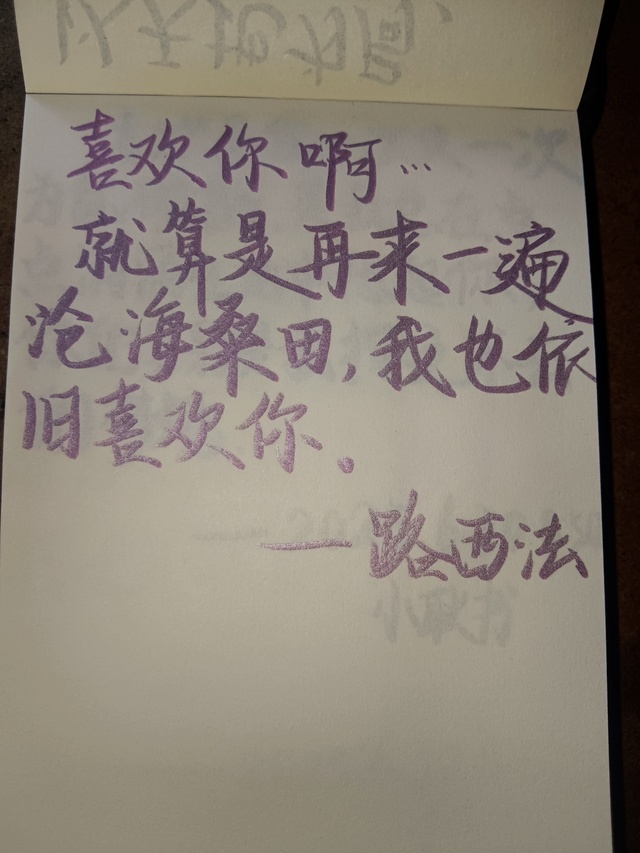 喜欢你啊…
就算是再来一遍
沧海桑田,我也依
旧喜欢你.
—路西法